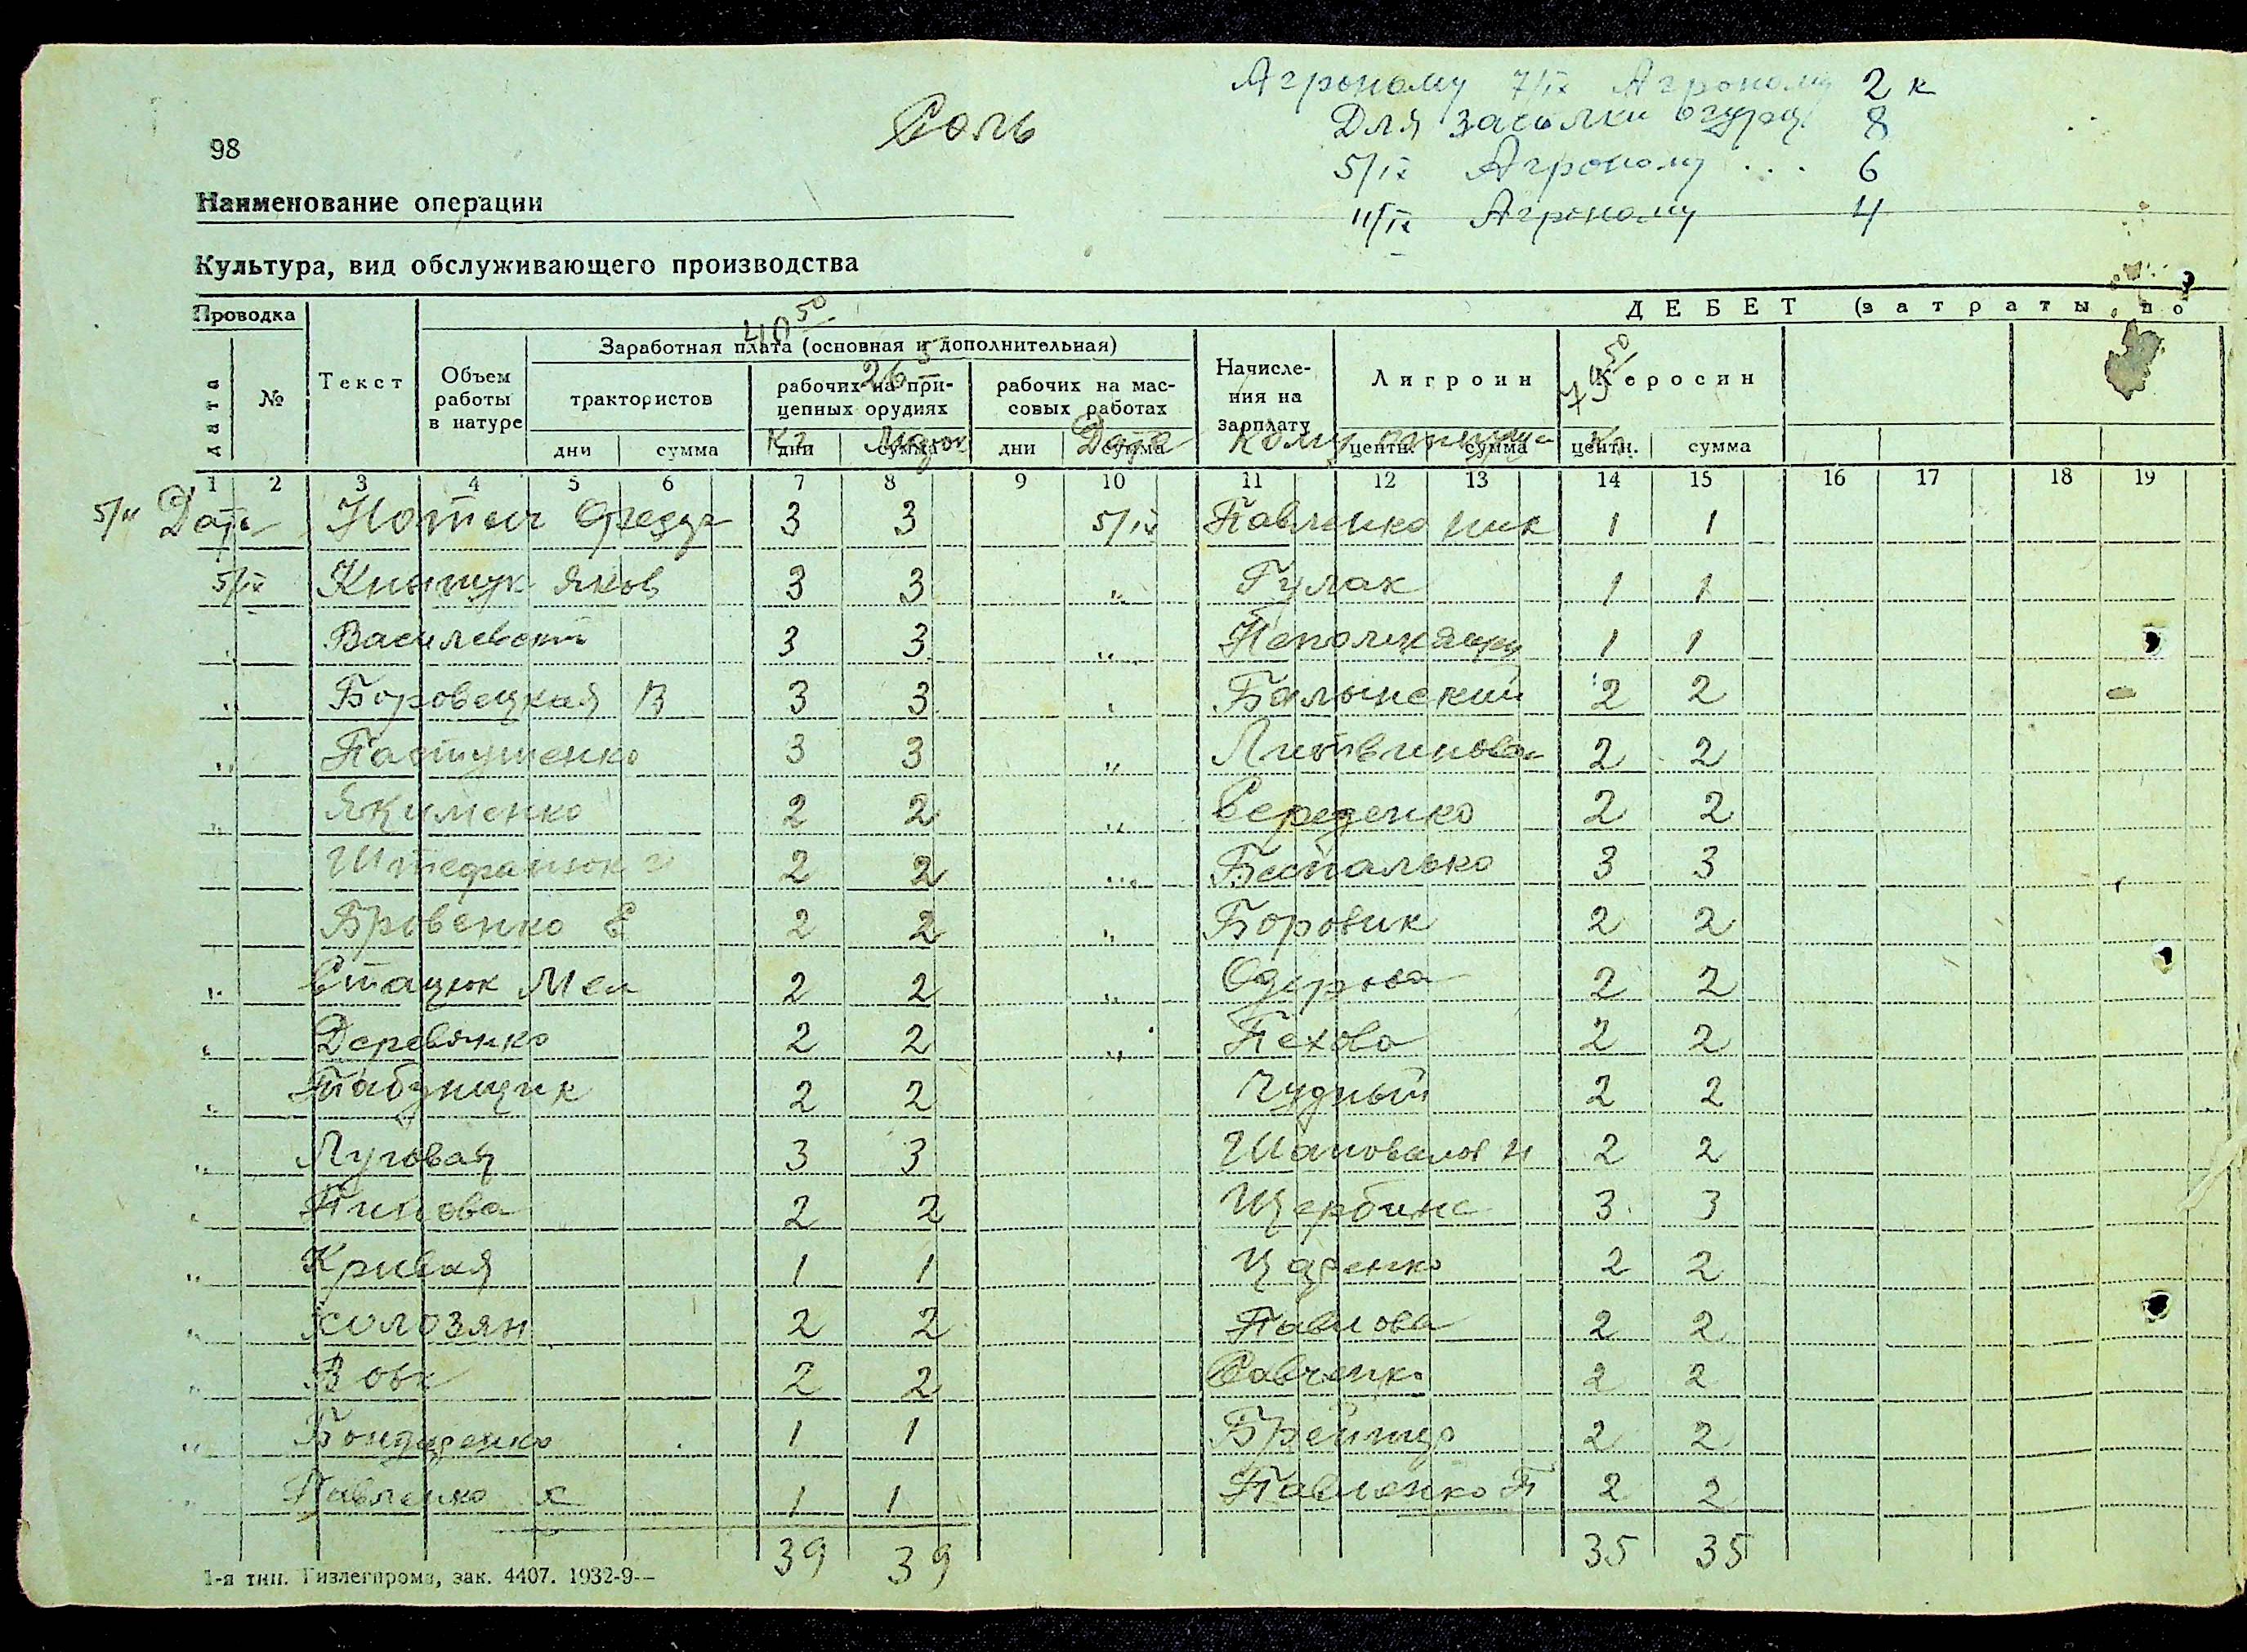 Агроному 7/IX Агроному 2 к
Соль
Для засолки огурц 8
98
5/IX Агроному ... 6
Наименование операции
11/IX Агроному 4
Культура, вид обслуживающего производства
Проводка
ДЕБЕТ (затраты по
40 50
Заработная плата (основная и дополнительная)
26 5
75 50
Дата № Текст Объем работы в натуре трактористов рабочих на прицепных орудиях рабочих на массовых работах Начисления на зарплату Лигроин Керосин
дни сумма дни сумма дни сумма центн. сумма центн. сумма
Кг Дата Кому Кг
1 2 3 4 5 6 7 8 9 10 11 12 13 14 15 16 17 18 19
Дата 3 3 5/IX Павленко ник 1 1
5/IX Яков 3 3 " Гулак 1 1
" Василевский 3 3 " 1 1
" Боровецкая В 3 3 " Балынский 2 2
" Пастушенко 3 3 " Литвинова 2 2
" Якименко 2 2 " Середенко 2 2
Штефанюк г 2 2 " Беспалько 3 3
Бровенко Е 2 2 " Боровик 2 2
" Стацюк Мел 2 2 " 2 2
" Деревянко 2 2 " Пехова 2 2
" Табунщик 2 2 Чудный 2 2
" Луговая 3 3 Шаповалов Н 2 2
" 2 2 Щербина 3 3
" Кривая 1 1 2 2
" 2 2 Павлова 2 2
" Вовк 2 2 Савченко 2 2
" Бондаренко 1 1 2 2
" Павленко х 1 1 Павленко П 2 2
39 39 35 35
1-я тип. Гизлегпрома, зак. 4407. 1932-9—